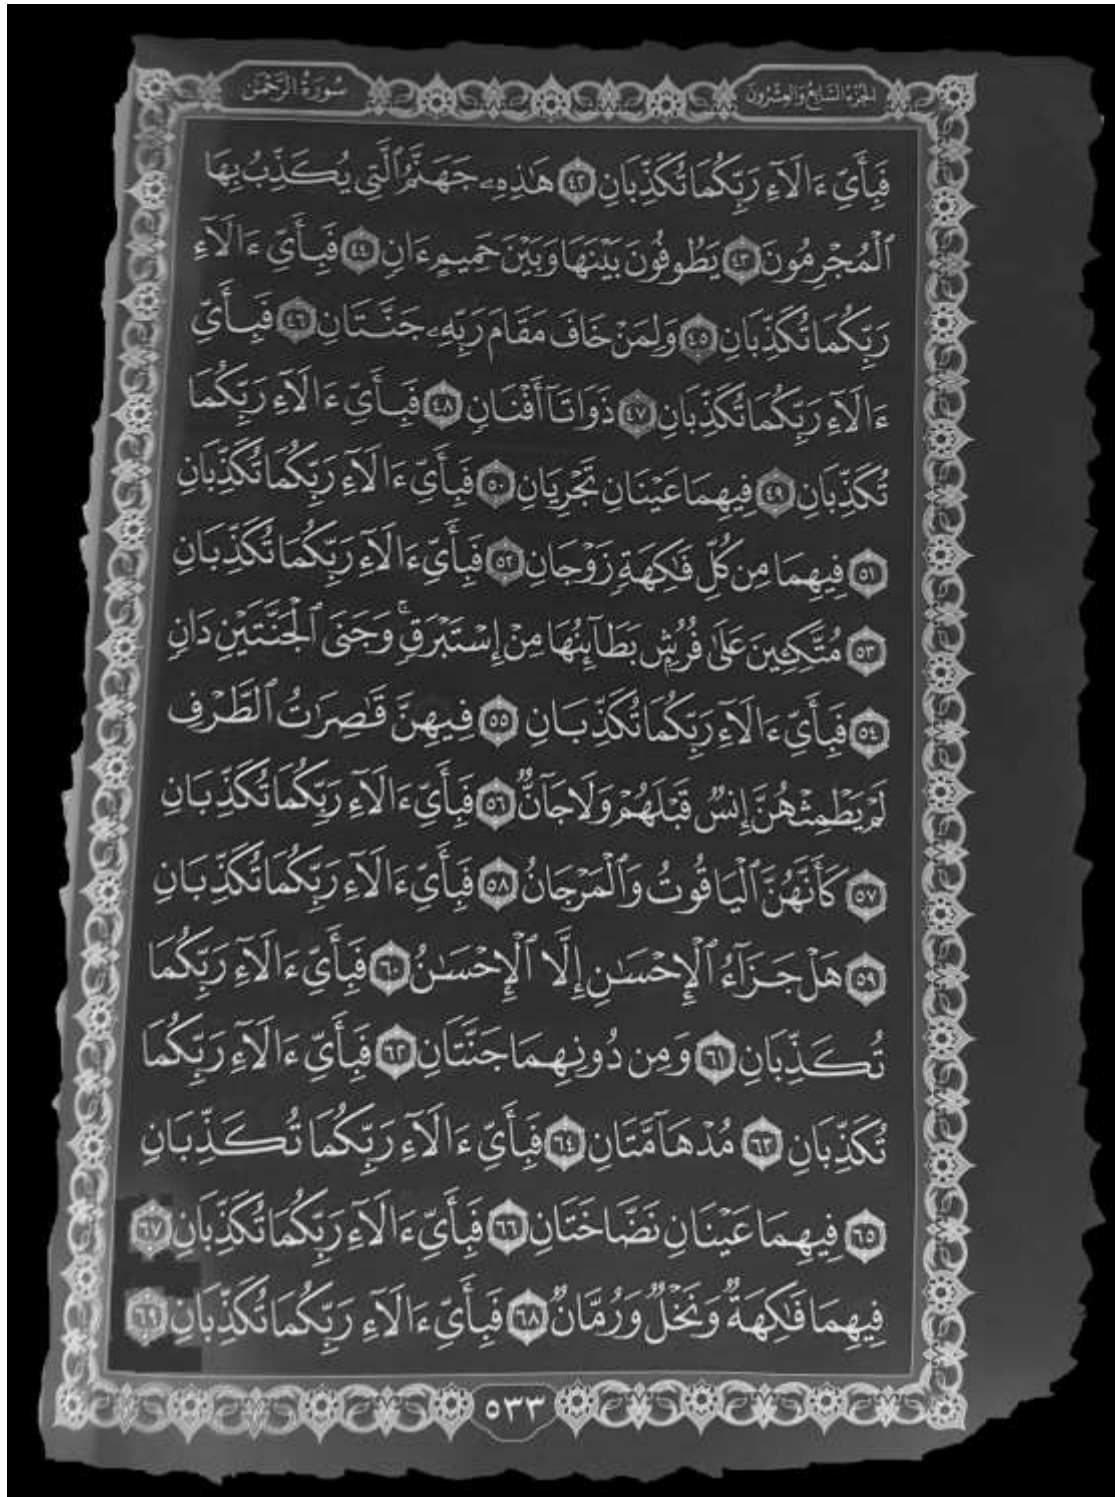 الجزء السابع والعشرون
سُورَةُ الرَّحْمَن
فَبِأَيِّ ءَالَآءِ رَبِّكُمَا تُكَذِّبَانِ ٤٢ هَٰذِهِۦ جَهَنَّمُ ٱلَّتِي يُكَذِّبُ بِهَا
ٱلْمُجْرِمُونَ ٤٣ يَطُوفُونَ بَيْنَهَا وَبَيْنَ حَمِيمٍ ءَانٍ ٤٤ فَبِأَيِّ ءَالَآءِ
رَبِّكُمَا تُكَذِّبَانِ ٤٥ وَلِمَنْ خَافَ مَقَامَ رَبِّهِۦ جَنَّتَانِ ٤٦ فَبِأَيِّ
ءَالَآءِ رَبِّكُمَا تُكَذِّبَانِ ٤٧ ذَوَاتَآ أَفْنَانٍ ٤٨ فَبِأَيِّ ءَالَآءِ رَبِّكُمَا
تُكَذِّبَانِ ٤٩ فِيهِمَا عَيْنَانِ تَجْرِيَانِ ٥٠ فَبِأَيِّ ءَالَآءِ رَبِّكُمَا تُكَذِّبَانِ
٥١ فِيهِمَا مِن كُلِّ فَٰكِهَةٍ زَوْجَانِ ٥٢ فَبِأَيِّ ءَالَآءِ رَبِّكُمَا تُكَذِّبَانِ
٥٣ مُتَّكِـِٔينَ عَلَىٰ فُرُشٍۭ بَطَآئِنُهَا مِنْ إِسْتَبْرَقٍۚ وَجَنَى ٱلْجَنَّتَيْنِ دَانٍ
٥٤ فَبِأَيِّ ءَالَآءِ رَبِّكُمَا تُكَذِّبَانِ ٥٥ فِيهِنَّ قَٰصِرَٰتُ ٱلطَّرْفِ
لَمْ يَطْمِثْهُنَّ إِنسٌ قَبْلَهُمْ وَلَا جَآنٌّ ٥٦ فَبِأَيِّ ءَالَآءِ رَبِّكُمَا تُكَذِّبَانِ
٥٧ كَأَنَّهُنَّ ٱلْيَاقُوتُ وَٱلْمَرْجَانُ ٥٨ فَبِأَيِّ ءَالَآءِ رَبِّكُمَا تُكَذِّبَانِ
٥٩ هَلْ جَزَآءُ ٱلْإِحْسَٰنِ إِلَّا ٱلْإِحْسَٰنُ ٦٠ فَبِأَيِّ ءَالَآءِ رَبِّكُمَا
تُكَذِّبَانِ ٦١ وَمِن دُونِهِمَا جَنَّتَانِ ٦٢ فَبِأَيِّ ءَالَآءِ رَبِّكُمَا
تُكَذِّبَانِ ٦٣ مُدْهَآمَّتَانِ ٦٤ فَبِأَيِّ ءَالَآءِ رَبِّكُمَا تُكَذِّبَانِ
٦٥ فِيهِمَا عَيْنَانِ نَضَّاخَتَانِ ٦٦ فَبِأَيِّ ءَالَآءِ رَبِّكُمَا تُكَذِّبَانِ ٦٧
فِيهِمَا فَٰكِهَةٌ وَنَخْلٌ وَرُمَّانٌ ٦٨ فَبِأَيِّ ءَالَآءِ رَبِّكُمَا تُكَذِّبَانِ ٦٩
٥٣٣